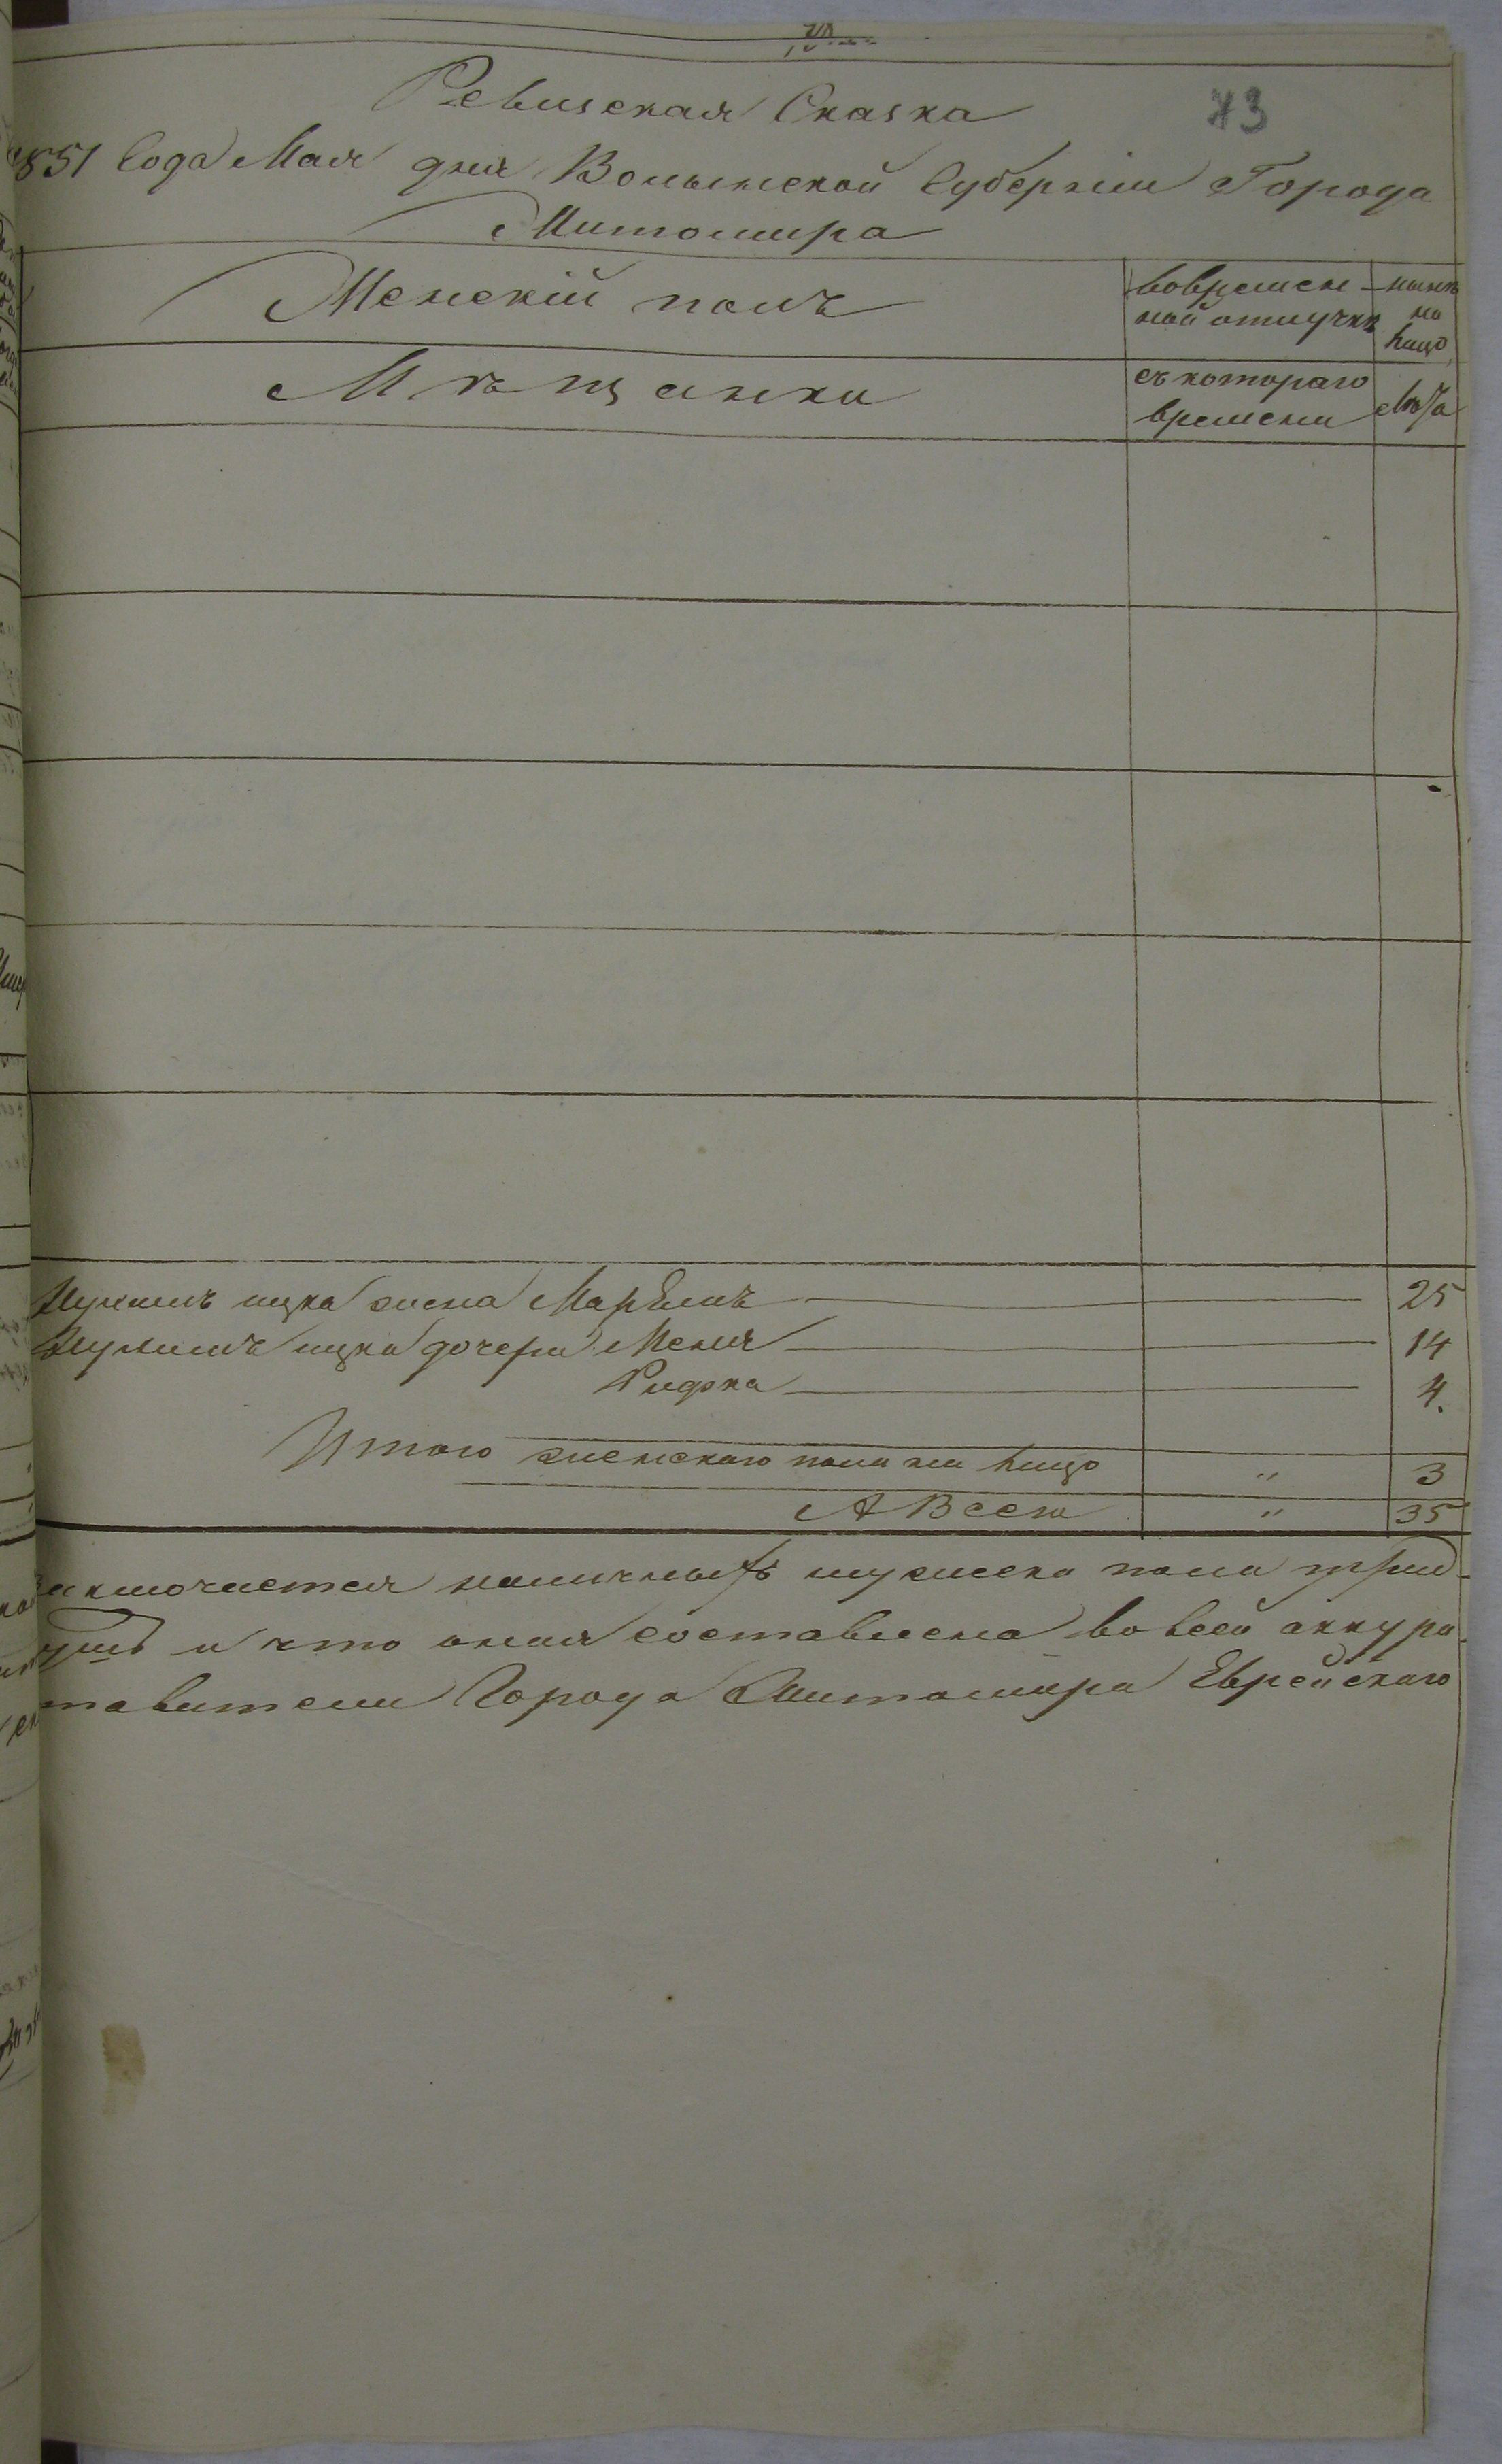 Ревизская Сказка
43
1851 Года Мая дня Волынской Губернии Города
Житомира
Женскій полъ
вовремен-
ной отлучкѣ
нынѣ
на
лицо
Мѣщанки
съ котораго
времени
Лѣта
ицка жена Марьямъ 25
ицка дочери Меня 14
Рифка 4.
Итого женскаго пола на лицо " 3
А Всего " 35
заключается наличныхъ мужеска пола трид-
и что оная составлена во всей аккура-
тавители Города Житомира Еврейскаго